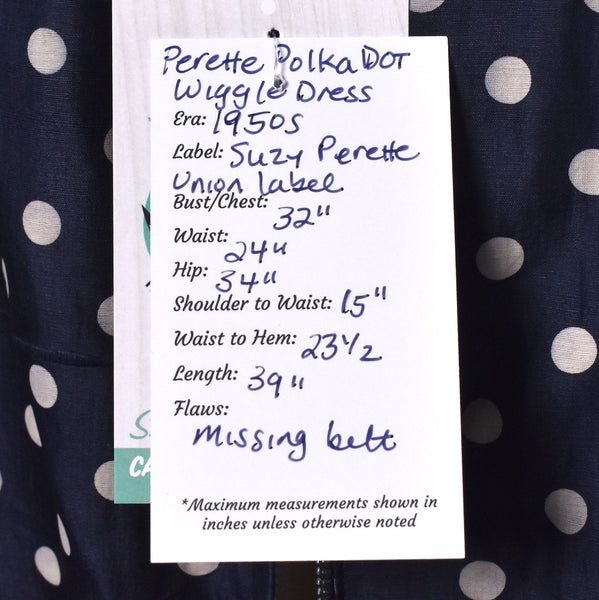 Perette Polka DOT
Wiggle Dress
Era: 1950s
Label: Suzy Perette
Union label
Bust/Chest: 32"
Waist: 24"
Hip: 34"
Shoulder to Waist: 15"
Waist to Hem: 23½
Length: 39"
Flaws:
Missing belt
*Maximum measurements shown in
inches unless otherwise noted